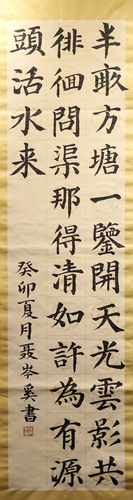 半畝方塘一鑒開天光雲影共
徘徊問渠那得清如許為有源
頭活水来
癸卯夏月聂岑奚書